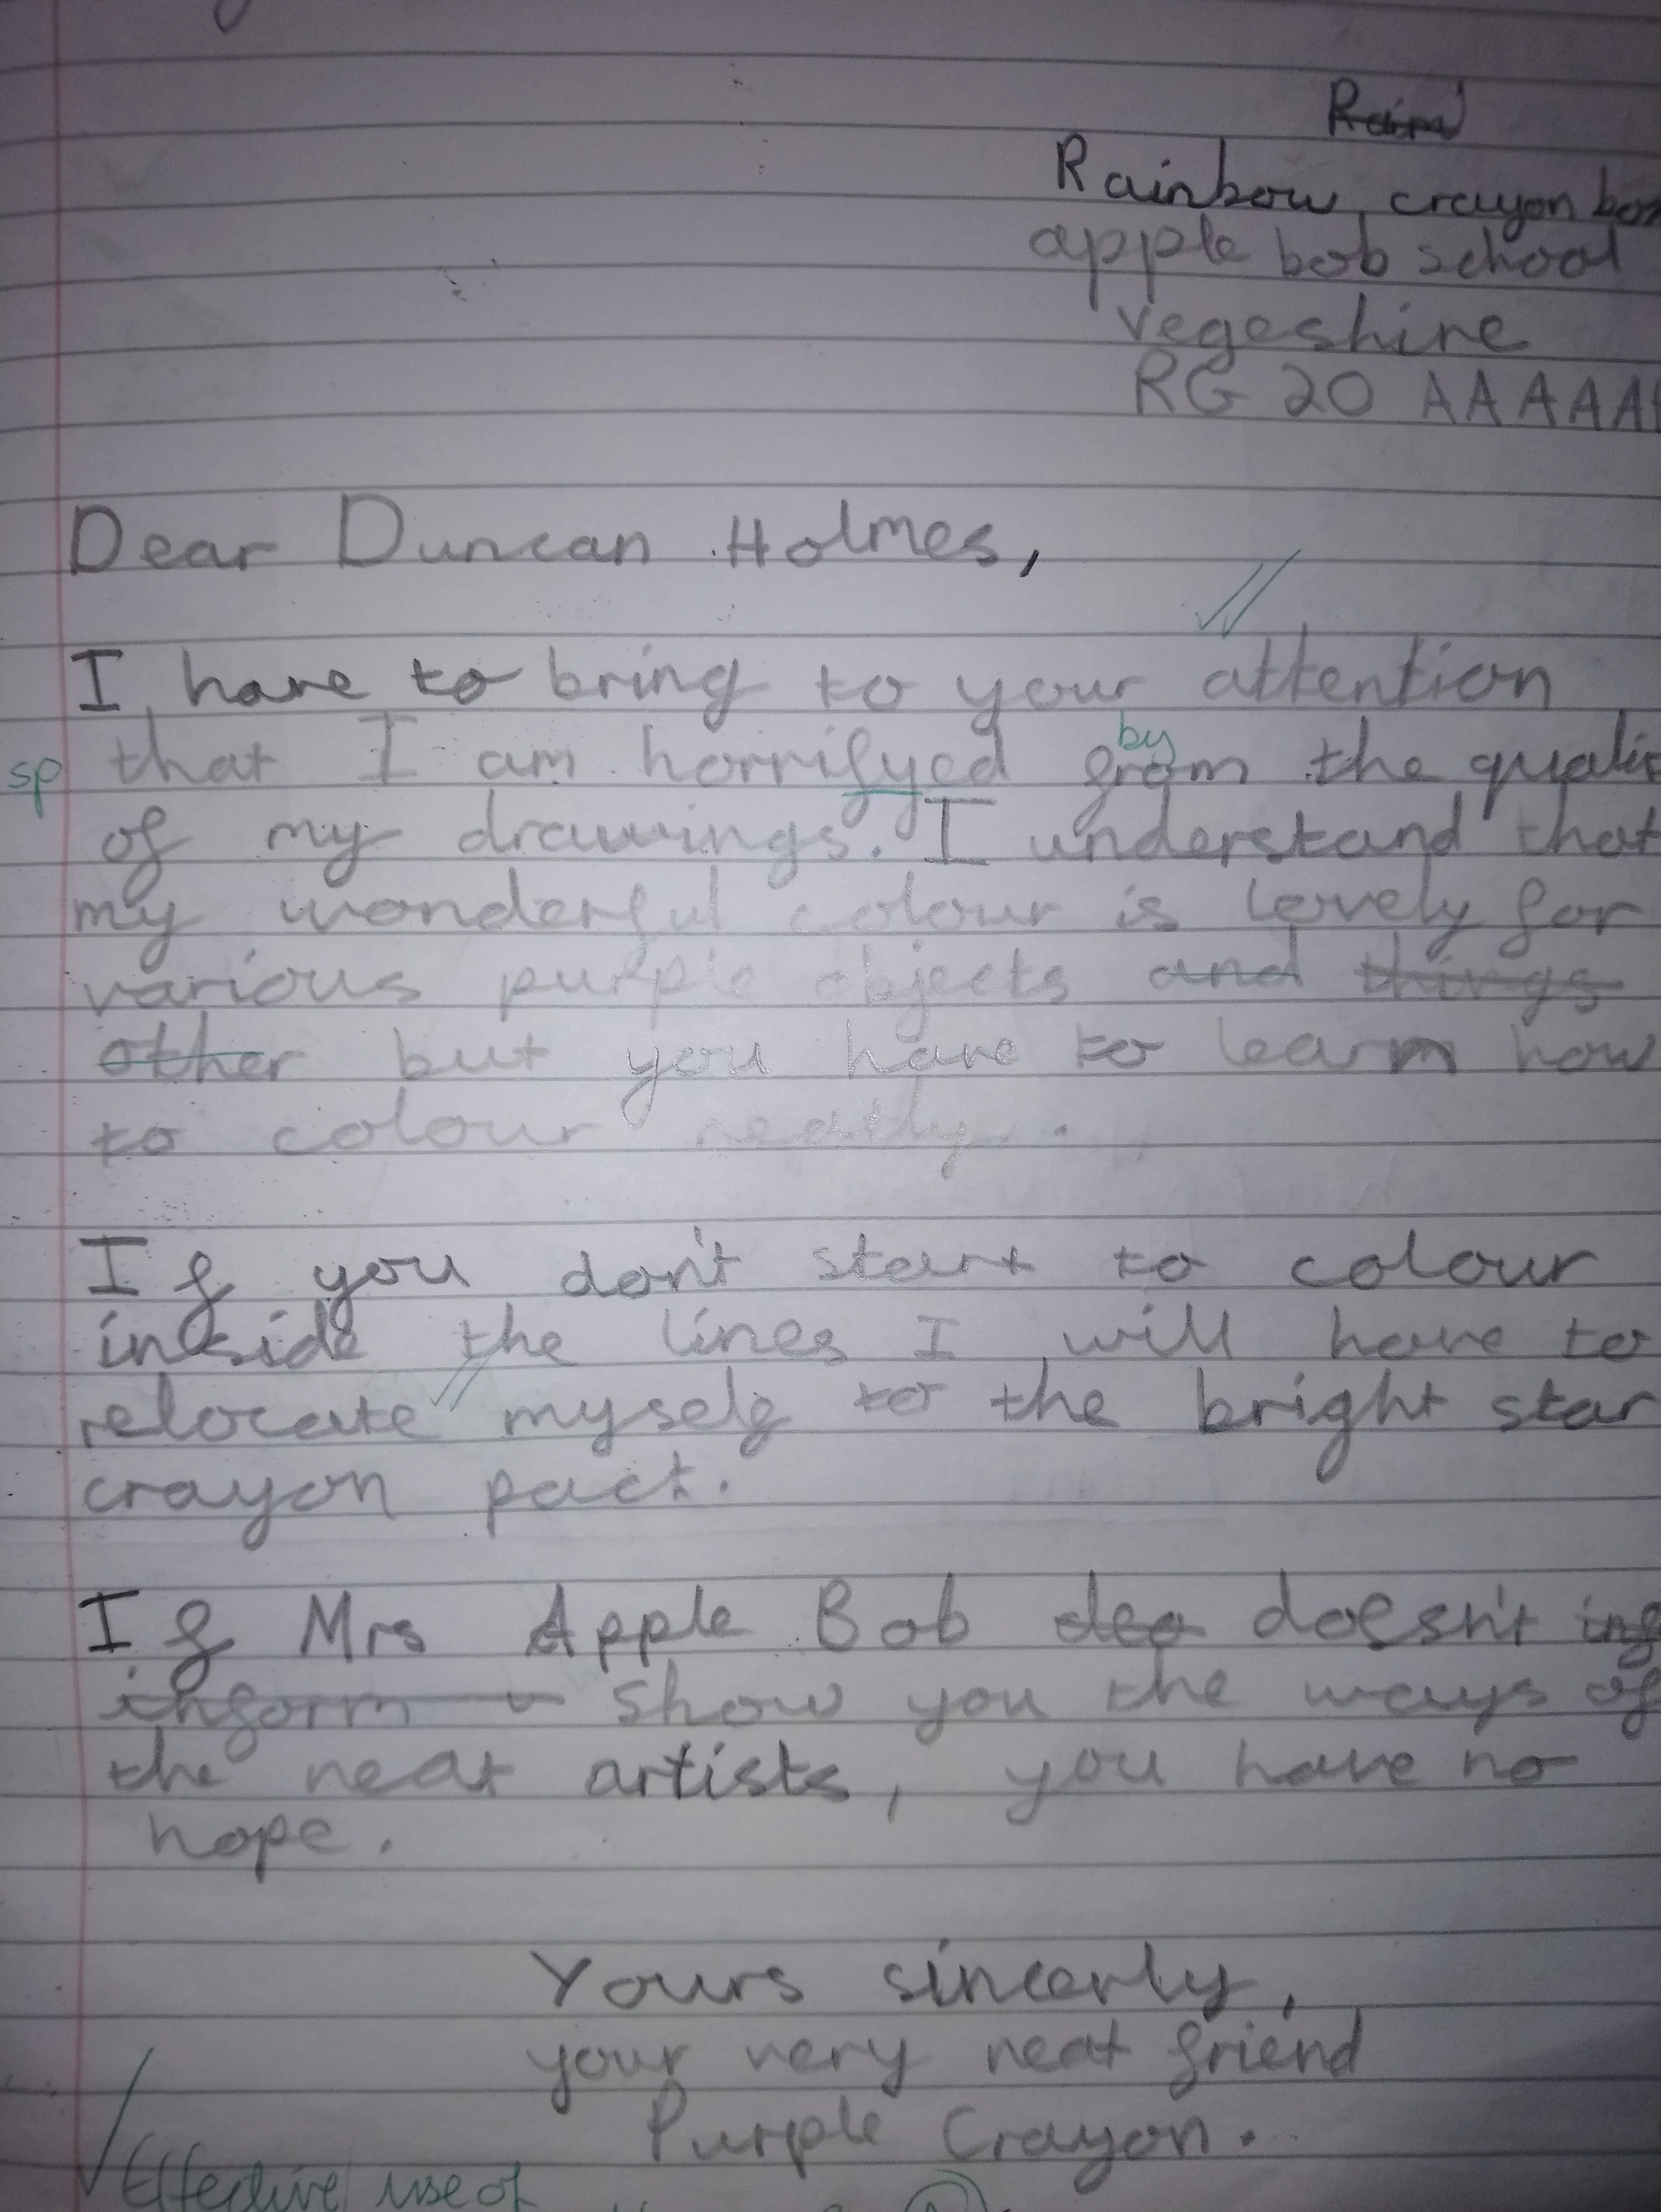 Rain
Rainbow crayon box
apple bob school
vegeshire
RG 20 AAAAA
Dear Duncan Holmes,
I have to bring to your attention
by
sp that I am horrifyed from the qualit
of my drawings. I understand that
my wonderful colour is lovely for
various purple objects and things
other but you have to learn how
to colour neatly.
If you don't start to colour
inside the lines I will have to
relocate myself to the bright star
crayon pact.
If Mrs Apple Bob deo doesn't inf
inform show you the ways of
the neat artists, you have no
hope.
Yours sincerly,
your very neat friend
Purple Crayon.
Effective use of